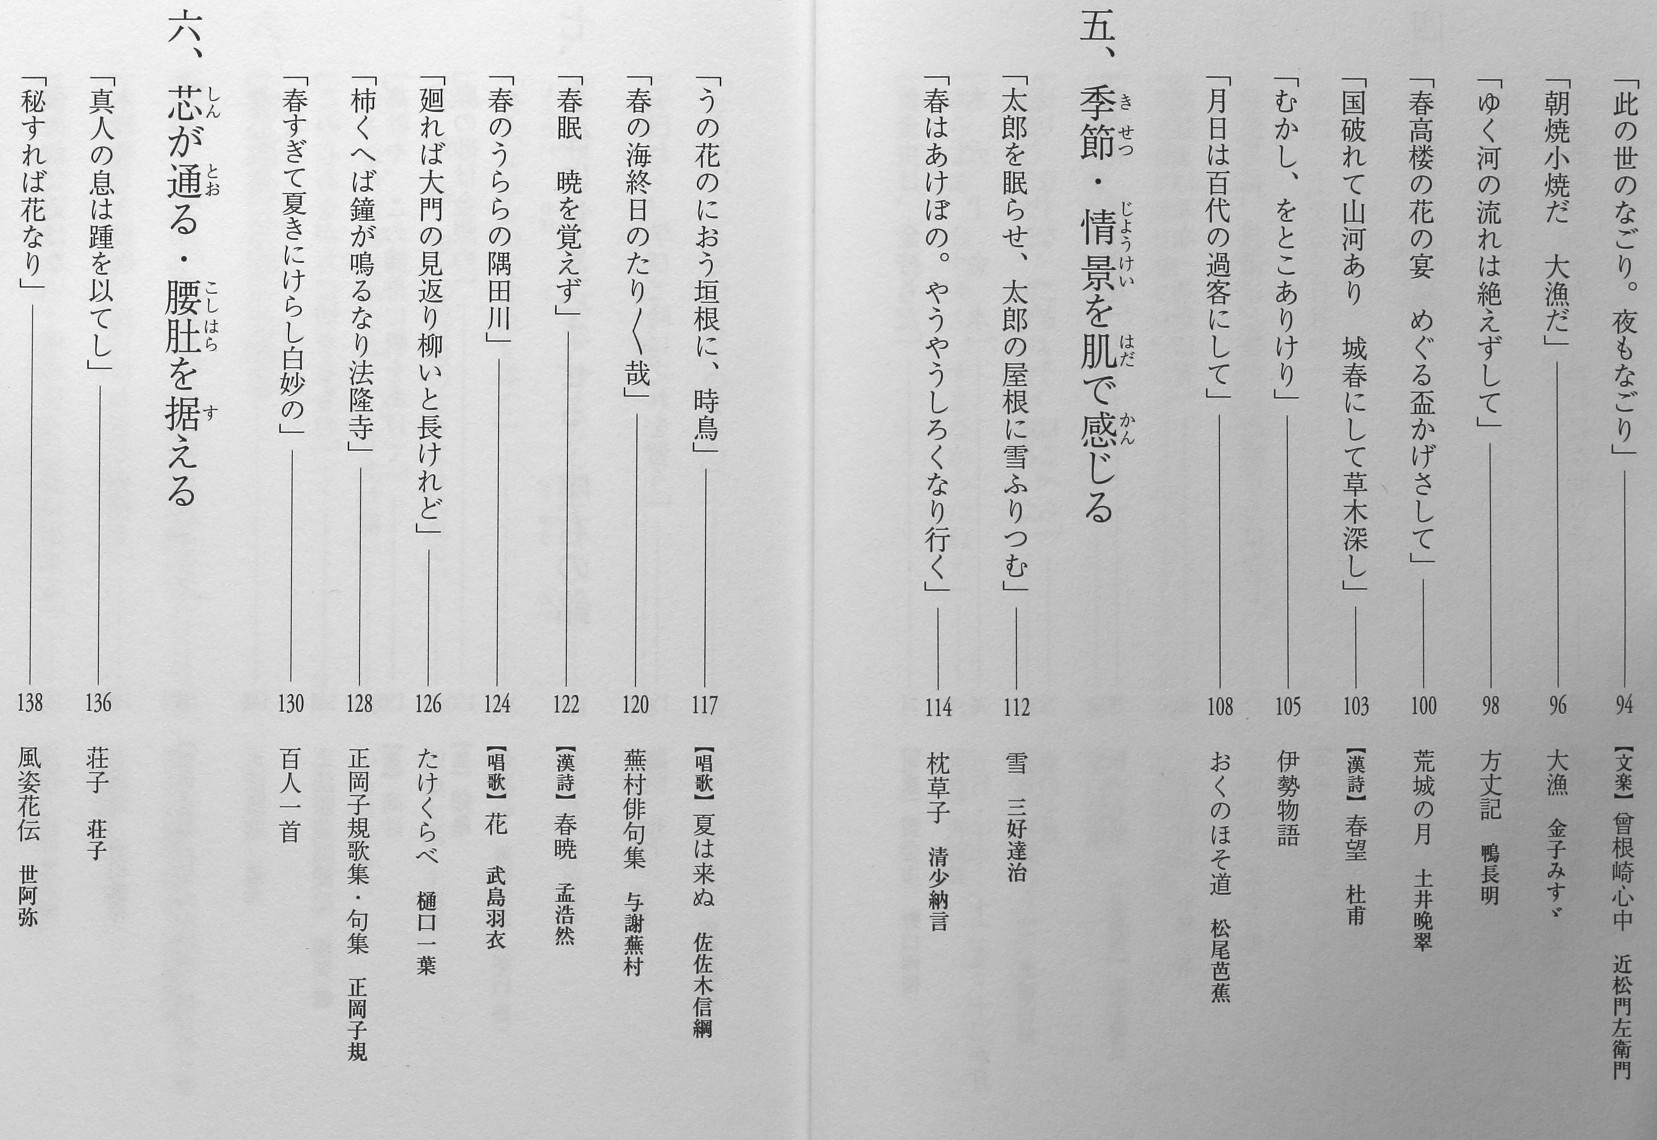 「此の世のなごり。夜もなごり」 94 【文楽】曾根崎心中 近松門左衛門
「朝焼小焼だ 大漁だ」 96 大漁 金子みすゞ
「ゆく河の流れは絶えずして」 98 方丈記 鴨長明
「春高楼の花の宴 めぐる盃かげさして」 100 荒城の月 土井晩翠
「国破れて山河あり 城春にして草木深し」 103 【漢詩】春望 杜甫
「むかし、をとこありけり」 105 伊勢物語
「月日は百代の過客にして」 108 おくのほそ道 松尾芭蕉
五、季節・情景を肌で感じる
きせつ じようけい はだ かん
「太郎を眠らせ、太郎の屋根に雪ふりつむ」 112 雪 三好達治
「春はあけぼの。やうやうしろくなり行く」 114 枕草子 清少納言
「うの花のにおう垣根に、時鳥」 117 【唱歌】夏は来ぬ 佐佐木信綱
「春の海終日のたり〳〵哉」 120 蕪村俳句集 与謝蕪村
「春眠 暁を覚えず」 122 【漢詩】春暁 孟浩然
「春のうららの隅田川」 124 【唱歌】花 武島羽衣
「廻れば大門の見返り柳いと長けれど」 126 たけくらべ 樋口一葉
「柿くへば鐘が鳴るなり法隆寺」 128 正岡子規歌集・句集 正岡子規
「春すぎて夏きにけらし白妙の」 130 百人一首
六、芯が通る・腰肚を据える
しん とお こしはら す
「真人の息は踵を以てし」 136 荘子 荘子
「秘すれば花なり」 138 風姿花伝 世阿弥